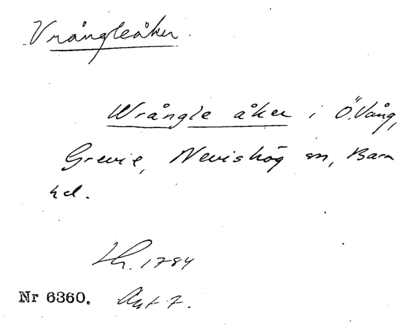 Vrångleåker.
Wrångle åker i Ö. Vång,
Grevie, Nevishög sn, Bara
hd.
Lh. 1784
Nr 6360. Akt 7.